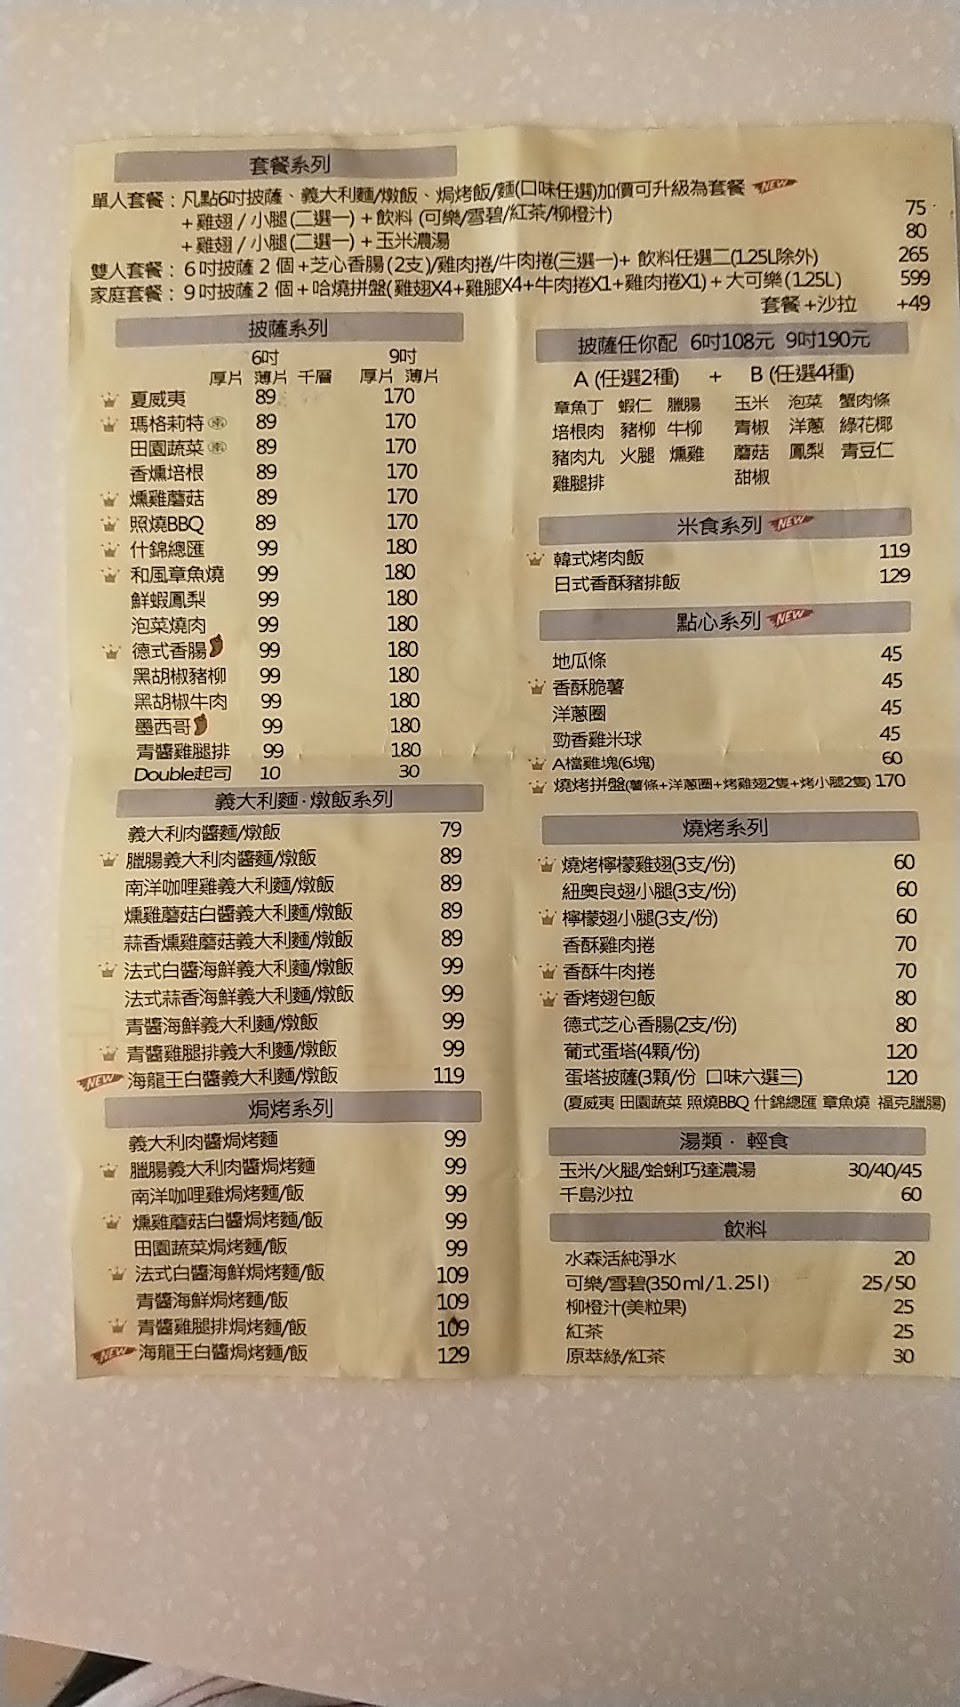 套餐系列
單人套餐：凡點6吋披薩、義大利麵/燉飯、焗烤飯/麵(口味任選)加價可升級為套餐 NEW
+雞翅/小腿(二選一)+飲料(可樂/雪碧/紅茶/柳橙汁) 75
+雞翅/小腿(二選一)+玉米濃湯 80
雙人套餐：6吋披薩2個+芝心香腸(2支)/雞肉捲/牛肉捲(三選一)+飲料任選二(1.25L除外) 265
家庭套餐：9吋披薩2個+哈燒拼盤(雞翅X4+雞腿X4+牛肉捲X1+雞肉捲X1)+大可樂(1.25L) 599
套餐+沙拉 +49
披薩系列
6吋 9吋
厚片 薄片 千層 厚片 薄片
夏威夷 89 170
瑪格莉特 89 170
田園蔬菜 89 170
香燻培根 89 170
燻雞蘑菇 89 170
照燒BBQ 89 170
什錦總匯 99 180
和風章魚燒 99 180
鮮蝦鳳梨 99 180
泡菜燒肉 99 180
德式香腸 99 180
黑胡椒豬柳 99 180
黑胡椒牛肉 99 180
墨西哥 99 180
青醬雞腿排 99 180
Double起司 10 30
義大利麵·燉飯系列
義大利肉醬麵/燉飯 79
臘腸義大利肉醬麵/燉飯 89
南洋咖哩雞義大利麵/燉飯 89
燻雞蘑菇白醬義大利麵/燉飯 89
蒜香燻雞蘑菇義大利麵/燉飯 89
法式白醬海鮮義大利麵/燉飯 99
法式蒜香海鮮義大利麵/燉飯 99
青醬海鮮義大利麵/燉飯 99
青醬雞腿排義大利麵/燉飯 99
NEW 海龍王白醬義大利麵/燉飯 119
焗烤系列
義大利肉醬焗烤麵 99
臘腸義大利肉醬焗烤麵 99
南洋咖哩雞焗烤麵/飯 99
燻雞蘑菇白醬焗烤麵/飯 99
田園蔬菜焗烤麵/飯 99
法式白醬海鮮焗烤麵/飯 109
青醬海鮮焗烤麵/飯 109
青醬雞腿排焗烤麵/飯 109
NEW 海龍王白醬焗烤麵/飯 129
披薩任你配 6吋108元 9吋190元
A(任選2種) + B(任選4種)
章魚丁 蝦仁 臘腸 玉米 泡菜 蟹肉條
培根肉 豬柳 牛柳 青椒 洋蔥 綠花椰
豬肉丸 火腿 燻雞 蘑菇 鳳梨 青豆仁
雞腿排 甜椒
米食系列 NEW
韓式烤肉飯 119
日式香酥豬排飯 129
點心系列 NEW
地瓜條 45
香酥脆薯 45
洋蔥圈 45
勁香雞米球 45
A檔雞塊(6塊) 60
燒烤拼盤(薯條+洋蔥圈+烤雞翅2隻+烤小腿2隻) 170
燒烤系列
燒烤檸檬雞翅(3支/份) 60
紐奧良翅小腿(3支/份) 60
檸檬翅小腿(3支/份) 60
香酥雞肉捲 70
香酥牛肉捲 70
香烤翅包飯 80
德式芝心香腸(2支/份) 80
葡式蛋塔(4顆/份) 120
蛋塔披薩(3顆/份 口味六選三) 120
(夏威夷 田園蔬菜 照燒BBQ 什錦總匯 章魚燒 福克臘腸)
湯類·輕食
玉米/火腿/蛤蜊巧達濃湯 30/40/45
千島沙拉 60
飲料
水森活純淨水 20
可樂/雪碧(350ml/1.25l) 25/50
柳橙汁(美粒果) 25
紅茶 25
原萃綠/紅茶 30